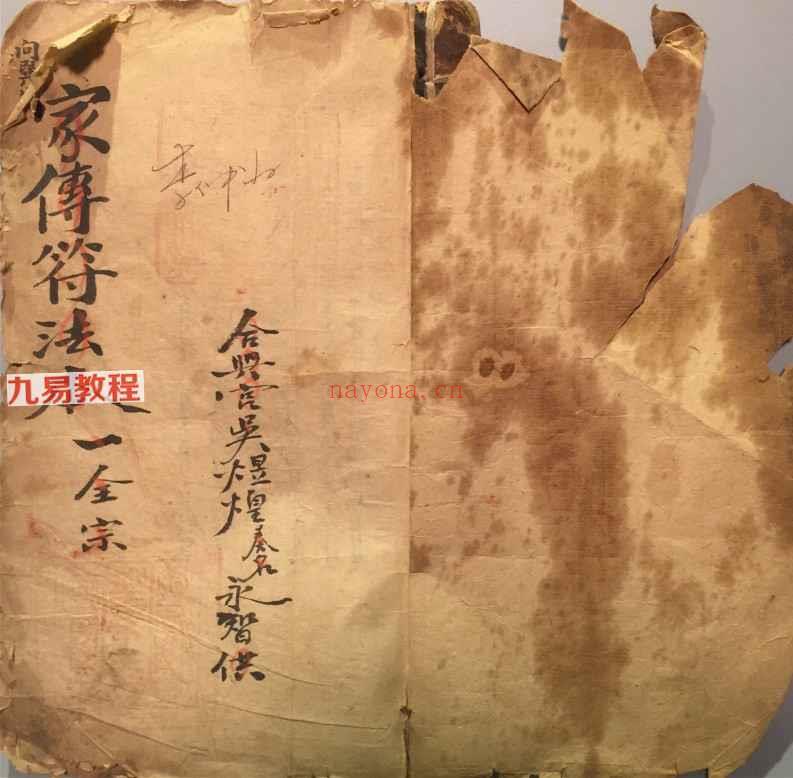 家傳符法
一全宗
合興宮吳煜煌奏名永智供
九易教程
nayona.cn